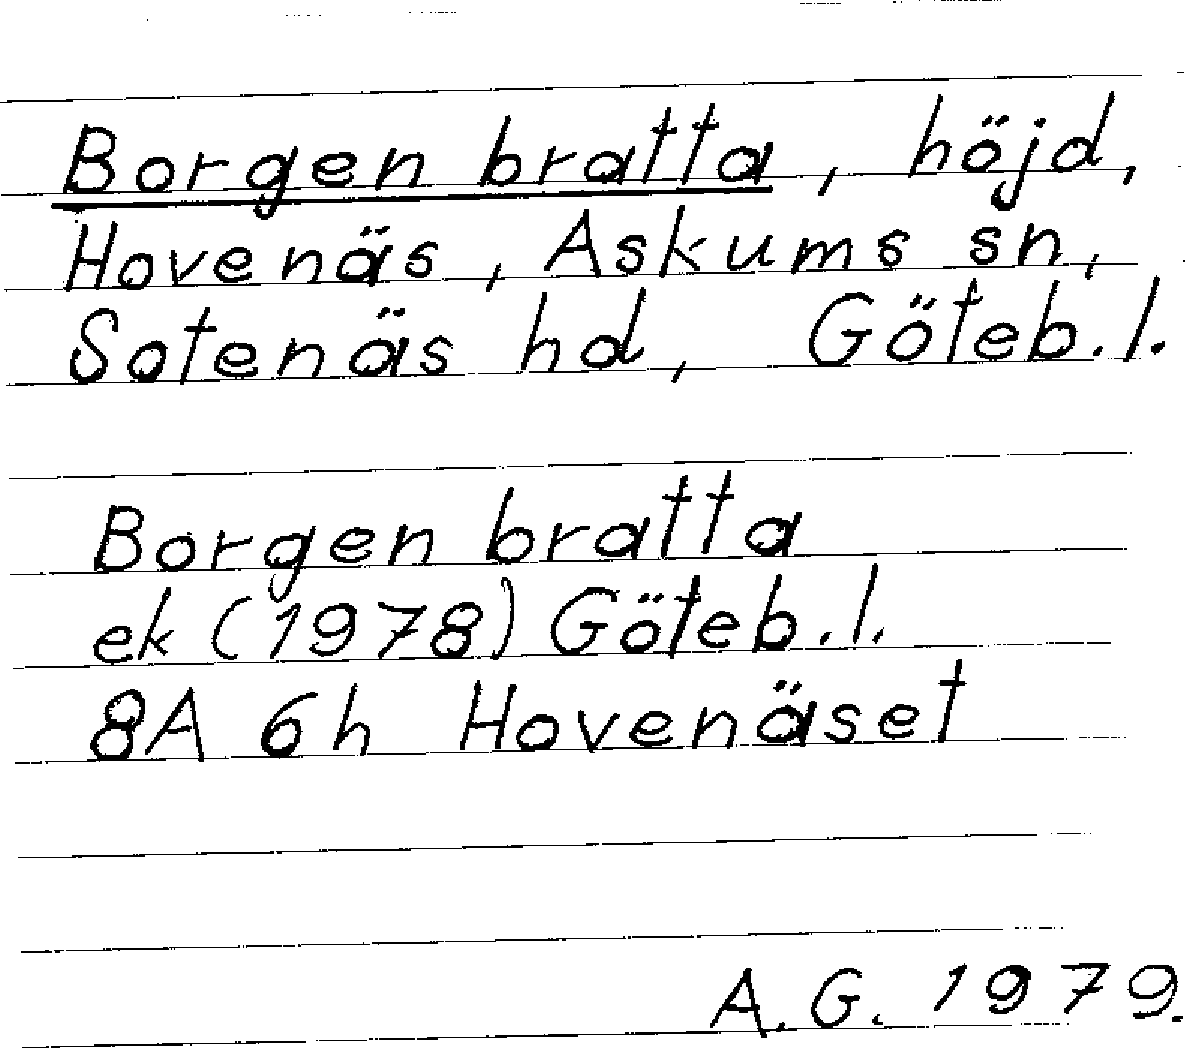 Borgen bratta, höjd,
Hovenäs, Askums sn,
Sotenäs hd, Göteb. l.
Borgen bratta
ek (1978) Göteb. l.
8A 6h Hovenäset
A. G. 1979.